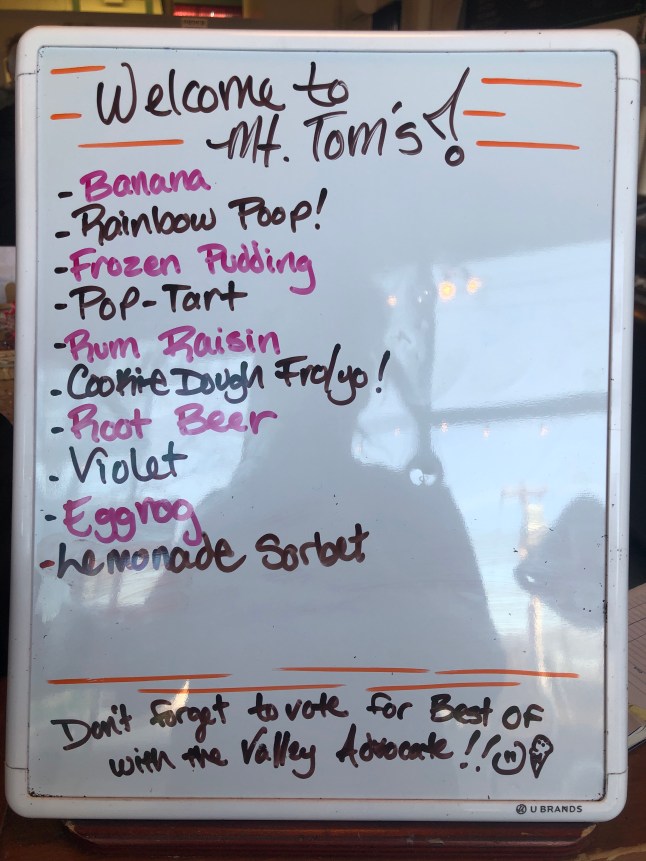 Welcome to
Mt. Tom's!
- Banana
- Rainbow Poop!
- Frozen Pudding
- Pop-Tart
- Rum Raisin
- Cookie Dough Fro/yo!
- Root Beer
- Violet
- Eggnog
- Lemonade Sorbet
Don't forget to vote for Best OF
with the Valley Advocate!!
U BRANDS